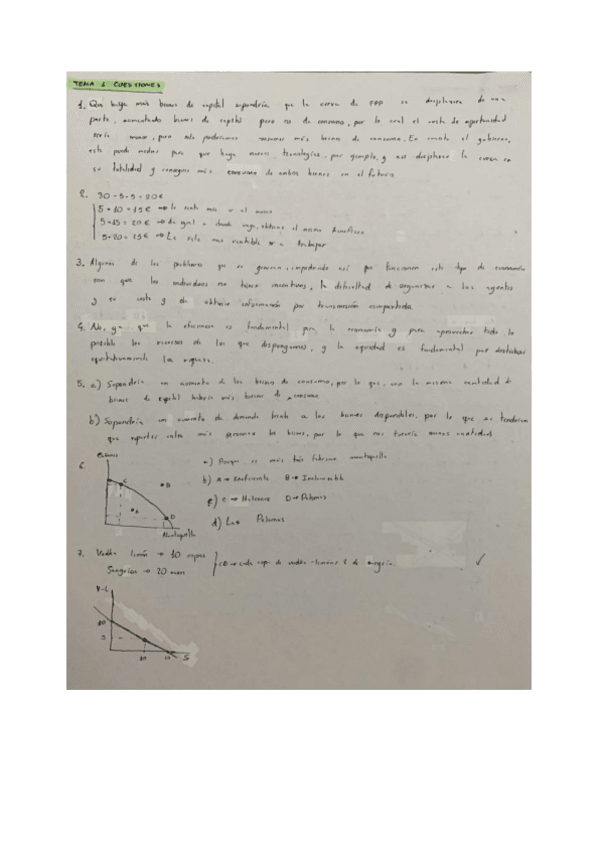 TEMA 1 CUESTIONES
1. Que haya más bienes de capital supondría que la curva de FPP se desplazara de una
parte, aumentando bienes de capital pero no de consumo, por lo cual el coste de oportunidad
sería menor, pero no podríamos consumir más bienes de consumo. En cuanto al gobierno,
este puede mediar para que haya nuevas tecnologías, por ejemplo, y así desplazar la curva en
su totalidad y conseguir más consumo de ambos bienes en el futuro.
2. 30-5-5 = 20€
5+10 = 15€ → le renta más ir al
5+15 = 20€ → da igual a donde vaya, obtiene el mismo beneficio
5+20 = 25€ → Le sale más rentable ir a trabajar
3. Algunos de los problemas que se generan, impidiendo así que funcionen este tipo de economía
son que los individuos no tienen incentivos, la dificultad de organizar a los agentes
y su coste y de obtener información por transmisión compartida.
4. No, ya que la eficiencia es fundamental para la economía y para aprovechar todo lo
posible los recursos de los que disponemos, y la equidad es fundamental para distribuir
equitativamente la riqueza.
5. a) Supondría un aumento de los bienes de consumo, por lo que, con la misma cantidad de
bienes de capital habría más bienes de consumo
b) Supondría un aumento de demanda frente a los bienes disponibles, por lo que se tendrían
que repartir entre más personas los bienes, por lo que nos tocaría menos cantidad
6.
C
B
A
D
Mantequilla
a) Porque es más fabricar mantequilla
b) A → Ineficiente B → Inalcanzable
c) C → Halcones D → Palomas
d) Las Palomas
7. Vodka limón → 10 copas
Sangrías → 20
CO → cada copa de vodka-limón = 2 de sangría
V-L
10
5
10
S